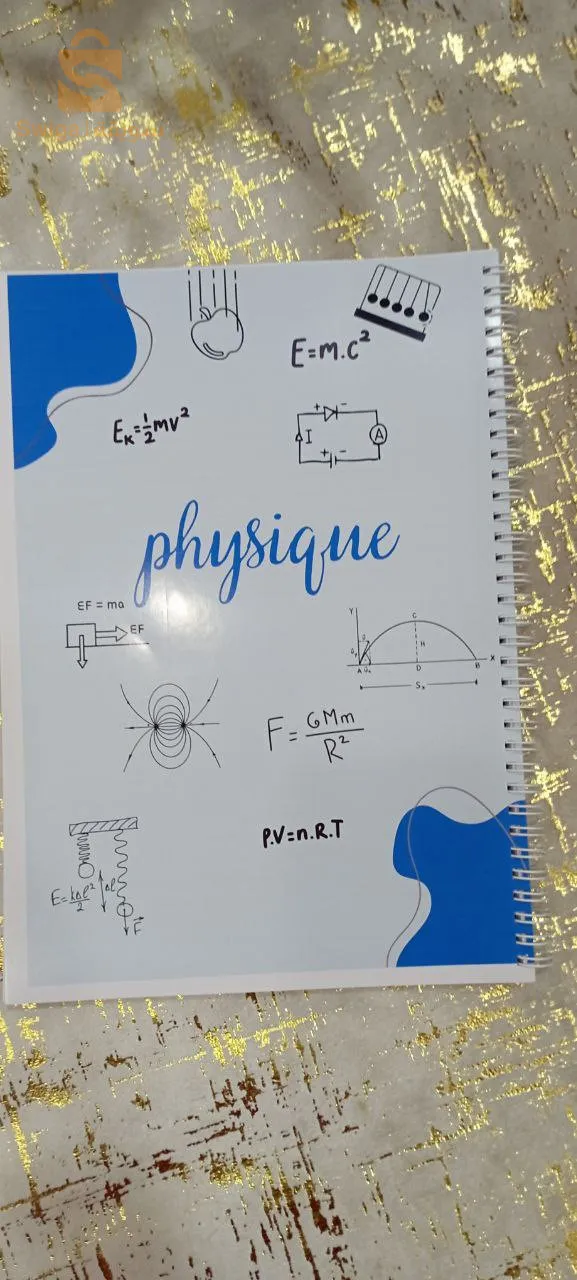 E=m.c²
Eₖ=½mv²
+ -
I
A
+ -
physique
ΣF = ma
ΣF
Y
C
H
A
D
B
X
Sₓ
F = GMm/R²
P.V=n.R.T
E=kΔl²/2
Δl
F